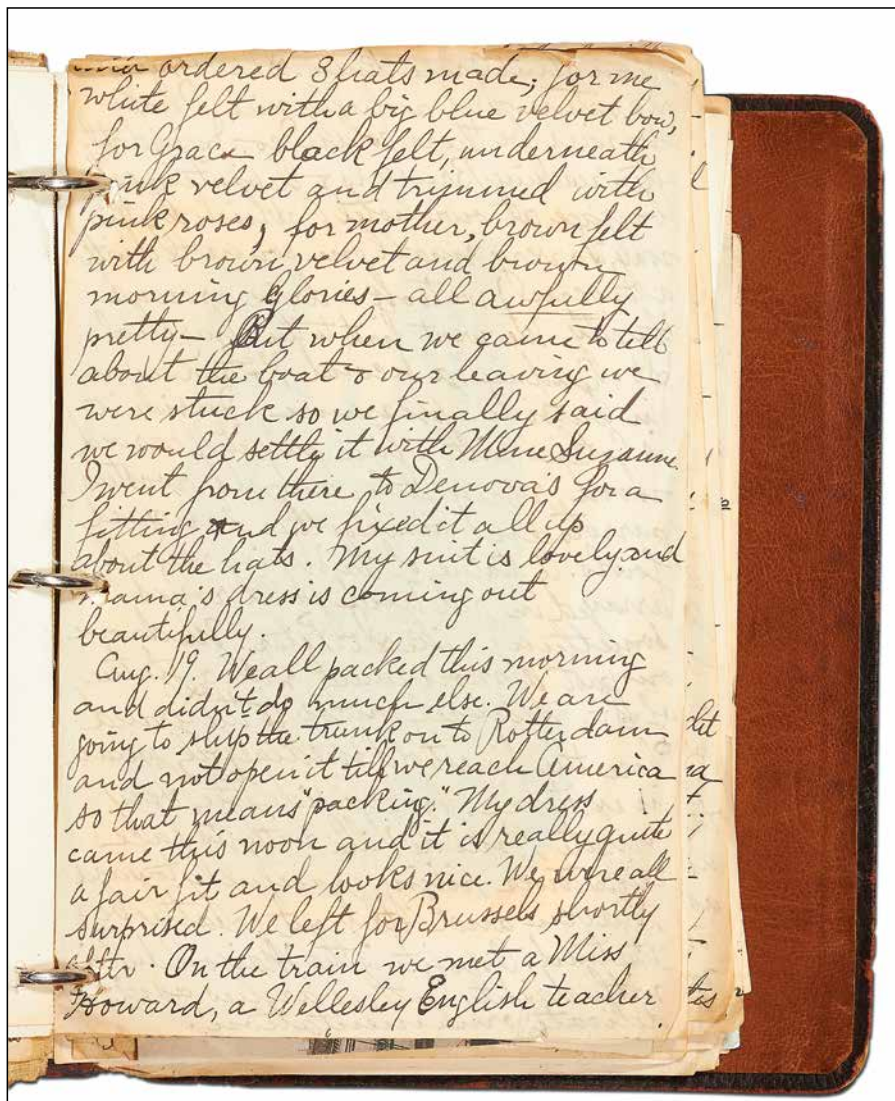 ordered 3 hats made; for me
white felt with a big blue velvet bow,
for Grace black felt, underneath
pink velvet and trimmed with
pink roses, for mother, brown felt
with brown velvet and brown
morning glories - all awfully
pretty - But when we came to tell
about the boat & our leaving we
were stuck so we finally said
we would settle it with Mme Suzanne.
I went from there to Denova's for a
fitting and we fixed it all up
about the hats. My suit is lovely and
Mama's dress is coming out
beautifully.
Aug. 19. We all packed this morning
and didn't do much else. We are
going to ship the trunk on to Rotterdam
and not open it till we reach America
so that means "packing." My dress
came this noon and it is really quite
a fair fit and looks nice. We were all
surprised. We left for Brussels shortly
after. On the train we met a Miss
Howard, a Wellesley English teacher